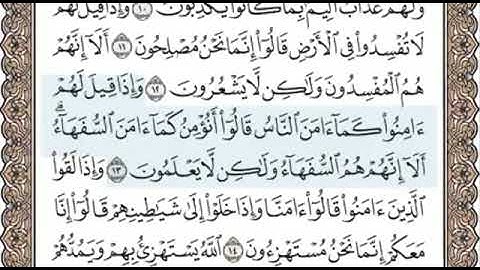 وَلَهُمْ عَذَابٌ أَلِيمٌ بِمَا كَانُوا۟ يَكْذِبُونَ ١٠ وَإِذَا قِيلَ لَهُمْ
لَا تُفْسِدُوا۟ فِى ٱلْأَرْضِ قَالُوٓا۟ إِنَّمَا نَحْنُ مُصْلِحُونَ ١١ أَلَآ إِنَّهُمْ
هُمُ ٱلْمُفْسِدُونَ وَلَٰكِن لَّا يَشْعُرُونَ ١٢ وَإِذَا قِيلَ لَهُمْ
ءَامِنُوا۟ كَمَآ ءَامَنَ ٱلنَّاسُ قَالُوٓا۟ أَنُؤْمِنُ كَمَآ ءَامَنَ ٱلسُّفَهَآءُ ۗ
أَلَآ إِنَّهُمْ هُمُ ٱلسُّفَهَآءُ وَلَٰكِن لَّا يَعْلَمُونَ ١٣ وَإِذَا لَقُوا۟
ٱلَّذِينَ ءَامَنُوا۟ قَالُوٓا۟ ءَامَنَّا وَإِذَا خَلَوْا۟ إِلَىٰ شَيَٰطِينِهِمْ قَالُوٓا۟ إِنَّا
مَعَكُمْ إِنَّمَا نَحْنُ مُسْتَهْزِءُونَ ١٤ ٱللَّهُ يَسْتَهْزِئُ بِهِمْ وَيَمُدُّهُمْ